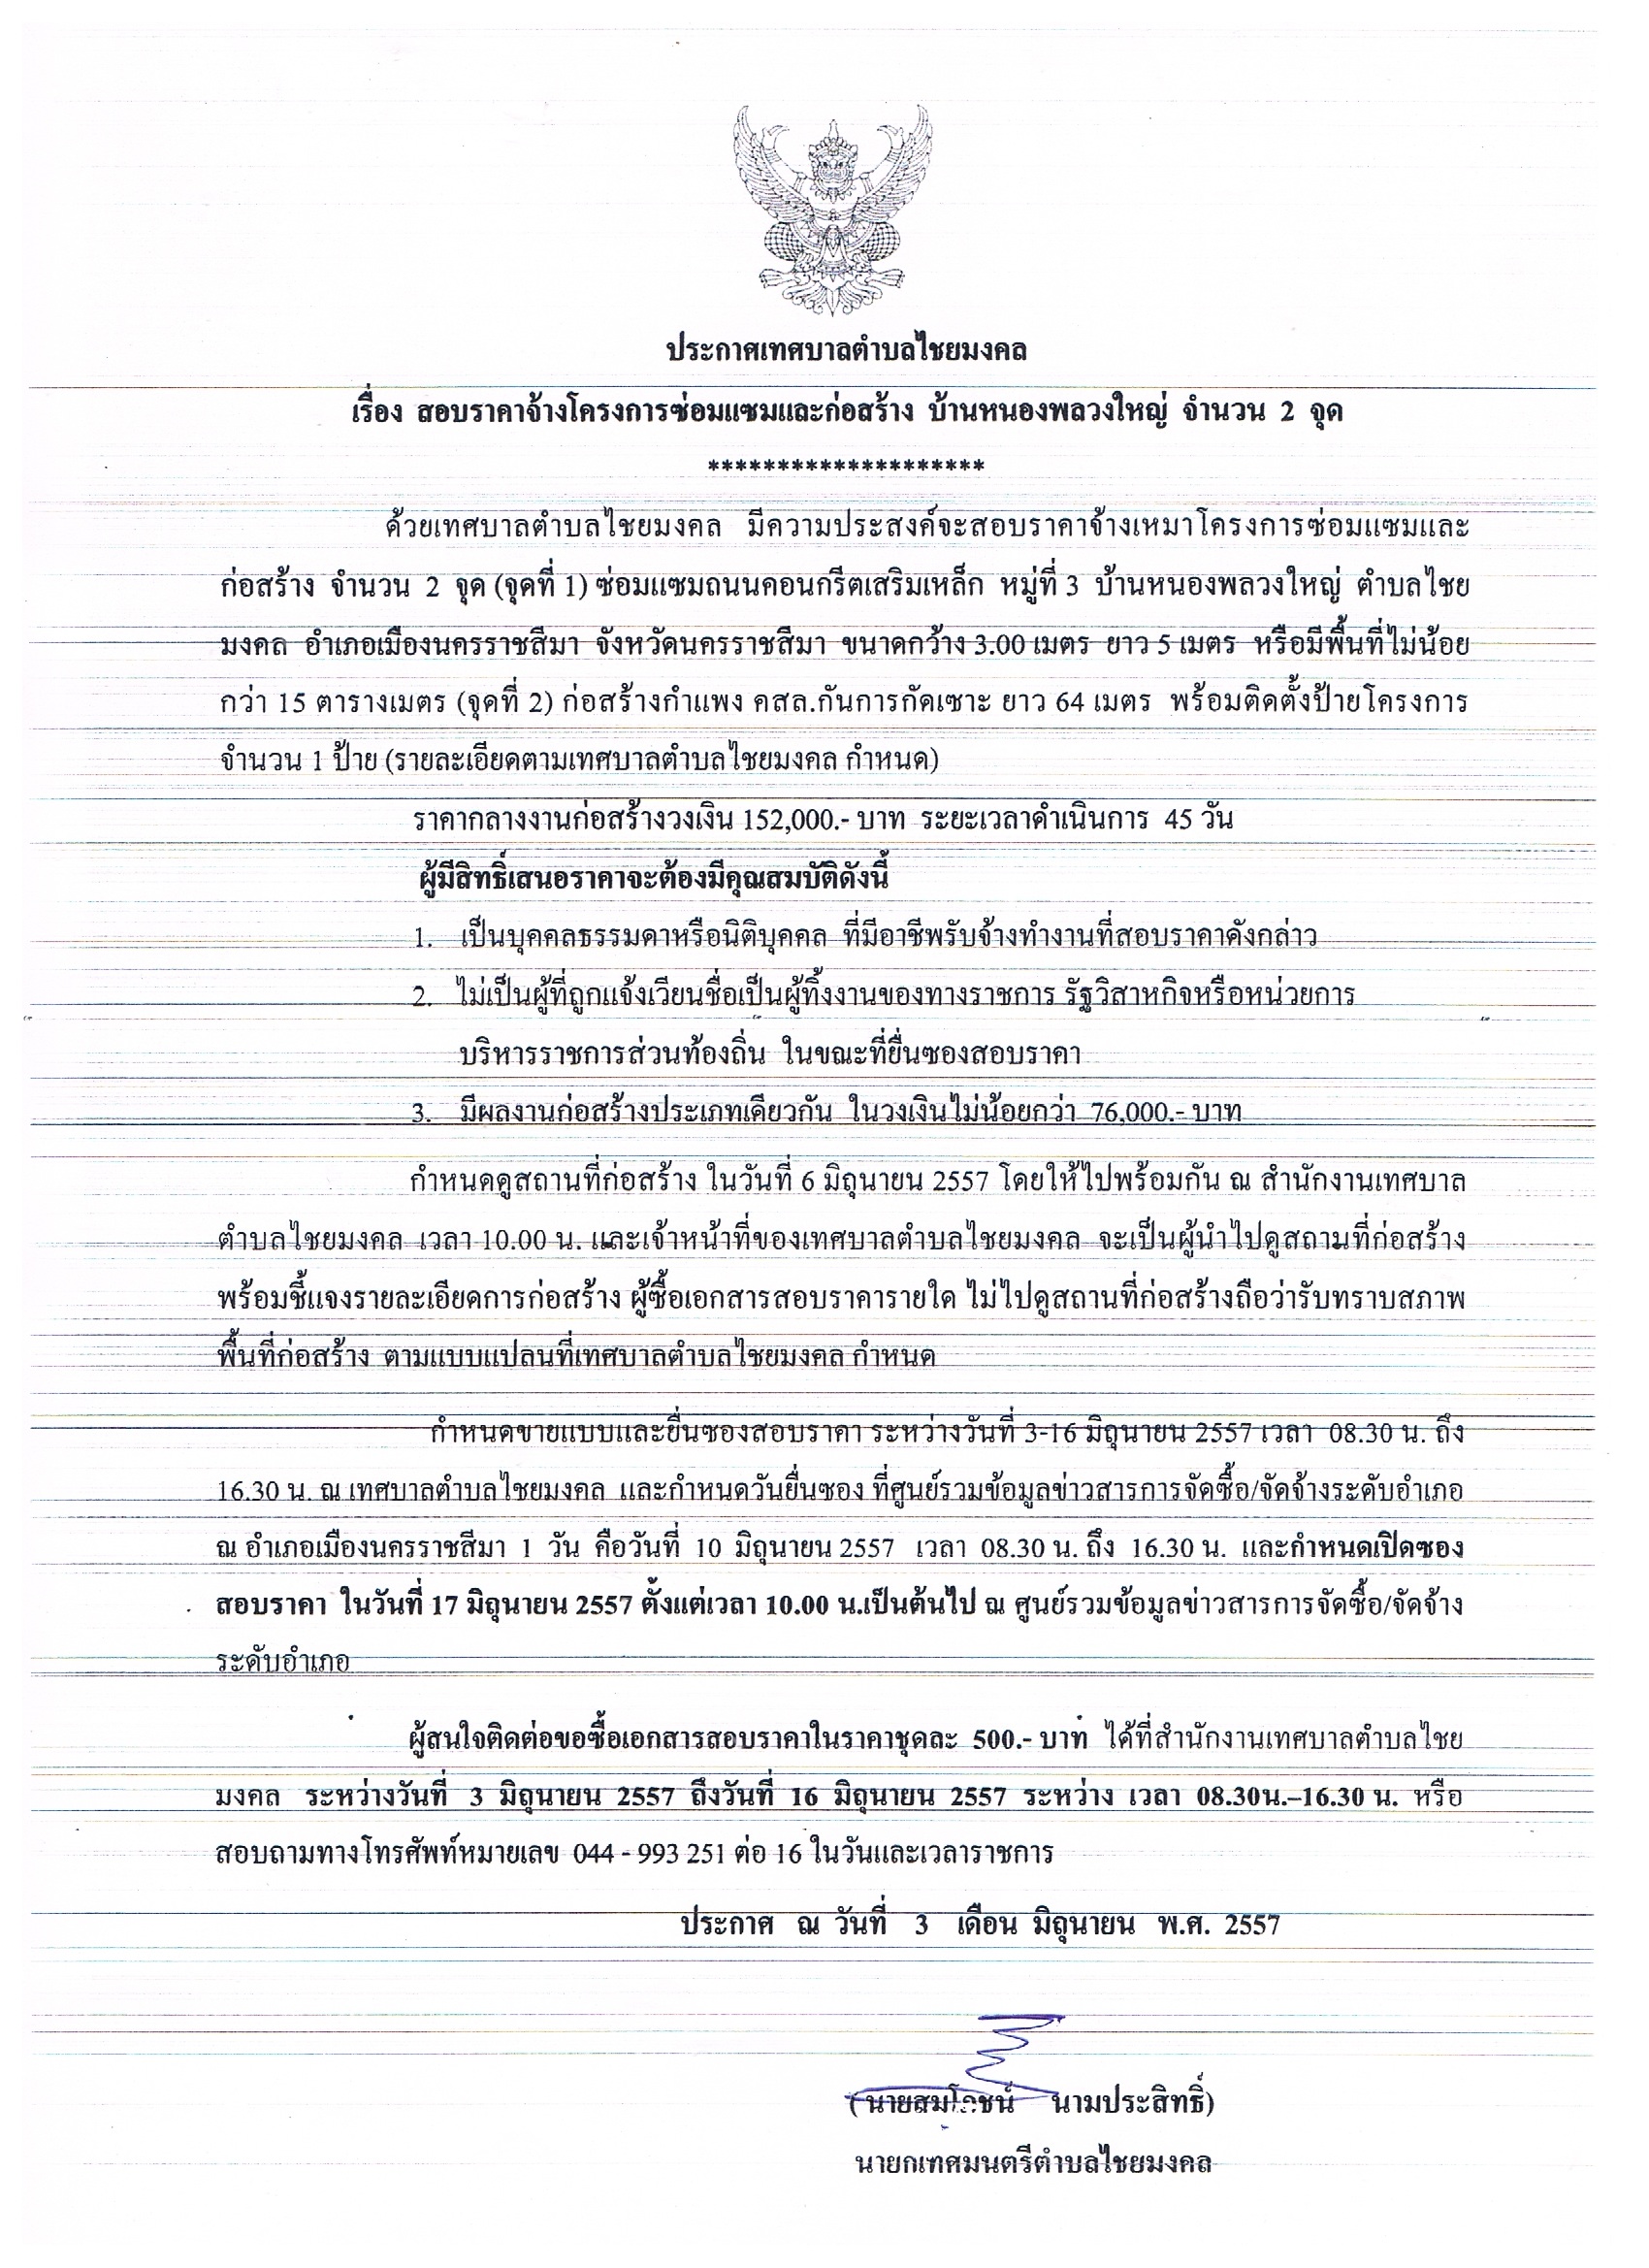 ประกาศเทศบาลตำบลไชยมงคล
เรื่อง สอบราคาจ้างโครงการซ่อมแซมและก่อสร้าง บ้านหนองพลวงใหญ่ จำนวน 2 จุด
********************
ด้วยเทศบาลตำบลไชยมงคล มีความประสงค์จะสอบราคาจ้างเหมาโครงการซ่อมแซมและ
ก่อสร้าง จำนวน 2 จุด (จุดที่ 1) ซ่อมแซมถนนคอนกรีตเสริมเหล็ก หมู่ที่ 3 บ้านหนองพลวงใหญ่ ตำบลไชย
มงคล อำเภอเมืองนครราชสีมา จังหวัดนครราชสีมา ขนาดกว้าง 3.00 เมตร ยาว 5 เมตร หรือมีพื้นที่ไม่น้อย
กว่า 15 ตารางเมตร (จุดที่ 2) ก่อสร้างกำแพง คสล.กันการกัดเซาะ ยาว 64 เมตร พร้อมติดตั้งป้ายโครงการ
จำนวน 1 ป้าย (รายละเอียดตามเทศบาลตำบลไชยมงคล กำหนด)
ราคากลางงานก่อสร้างวงเงิน 152,000.- บาท ระยะเวลาดำเนินการ 45 วัน
ผู้มีสิทธิ์เสนอราคาจะต้องมีคุณสมบัติดังนี้
1. เป็นบุคคลธรรมดาหรือนิติบุคคล ที่มีอาชีพรับจ้างทำงานที่สอบราคาดังกล่าว
2. ไม่เป็นผู้ที่ถูกแจ้งเวียนชื่อเป็นผู้ทิ้งงานของทางราชการ รัฐวิสาหกิจหรือหน่วยการ
บริหารราชการส่วนท้องถิ่น ในขณะที่ยื่นซองสอบราคา
3. มีผลงานก่อสร้างประเภทเดียวกัน ในวงเงินไม่น้อยกว่า 76,000.- บาท
กำหนดดูสถานที่ก่อสร้าง ในวันที่ 6 มิถุนายน 2557 โดยให้ไปพร้อมกัน ณ สำนักงานเทศบาล
ตำบลไชยมงคล เวลา 10.00 น. และเจ้าหน้าที่ของเทศบาลตำบลไชยมงคล จะเป็นผู้นำไปดูสถามที่ก่อสร้าง
พร้อมชี้แจงรายละเอียดการก่อสร้าง ผู้ซื้อเอกสารสอบราคารายใด ไม่ไปดูสถานที่ก่อสร้างถือว่ารับทราบสภาพ
พื้นที่ก่อสร้าง ตามแบบแปลนที่เทศบาลตำบลไชยมงคล กำหนด
กำหนดขายแบบและยื่นซองสอบราคา ระหว่างวันที่ 3-16 มิถุนายน 2557 เวลา 08.30 น. ถึง
16.30 น. ณ เทศบาลตำบลไชยมงคล และกำหนดวันยื่นซอง ที่ศูนย์รวมข้อมูลข่าวสารการจัดซื้อ/จัดจ้างระดับอำเภอ
ณ อำเภอเมืองนครราชสีมา 1 วัน คือวันที่ 10 มิถุนายน 2557 เวลา 08.30 น. ถึง 16.30 น. และกำหนดเปิดซอง
สอบราคา ในวันที่ 17 มิถุนายน 2557 ตั้งแต่เวลา 10.00 น.เป็นต้นไป ณ ศูนย์รวมข้อมูลข่าวสารการจัดซื้อ/จัดจ้าง
ระดับอำเภอ
ผู้สนใจติดต่อขอซื้อเอกสารสอบราคาในราคาชุดละ 500.- บาท ได้ที่สำนักงานเทศบาลตำบลไชย
มงคล ระหว่างวันที่ 3 มิถุนายน 2557 ถึงวันที่ 16 มิถุนายน 2557 ระหว่าง เวลา 08.30น.–16.30 น. หรือ
สอบถามทางโทรศัพท์หมายเลข 044 - 993 251 ต่อ 16 ในวันและเวลาราชการ
ประกาศ ณ วันที่ 3 เดือน มิถุนายน พ.ศ. 2557
( นายสมโภชน์ นามประสิทธิ์)
นายกเทศมนตรีตำบลไชยมงคล